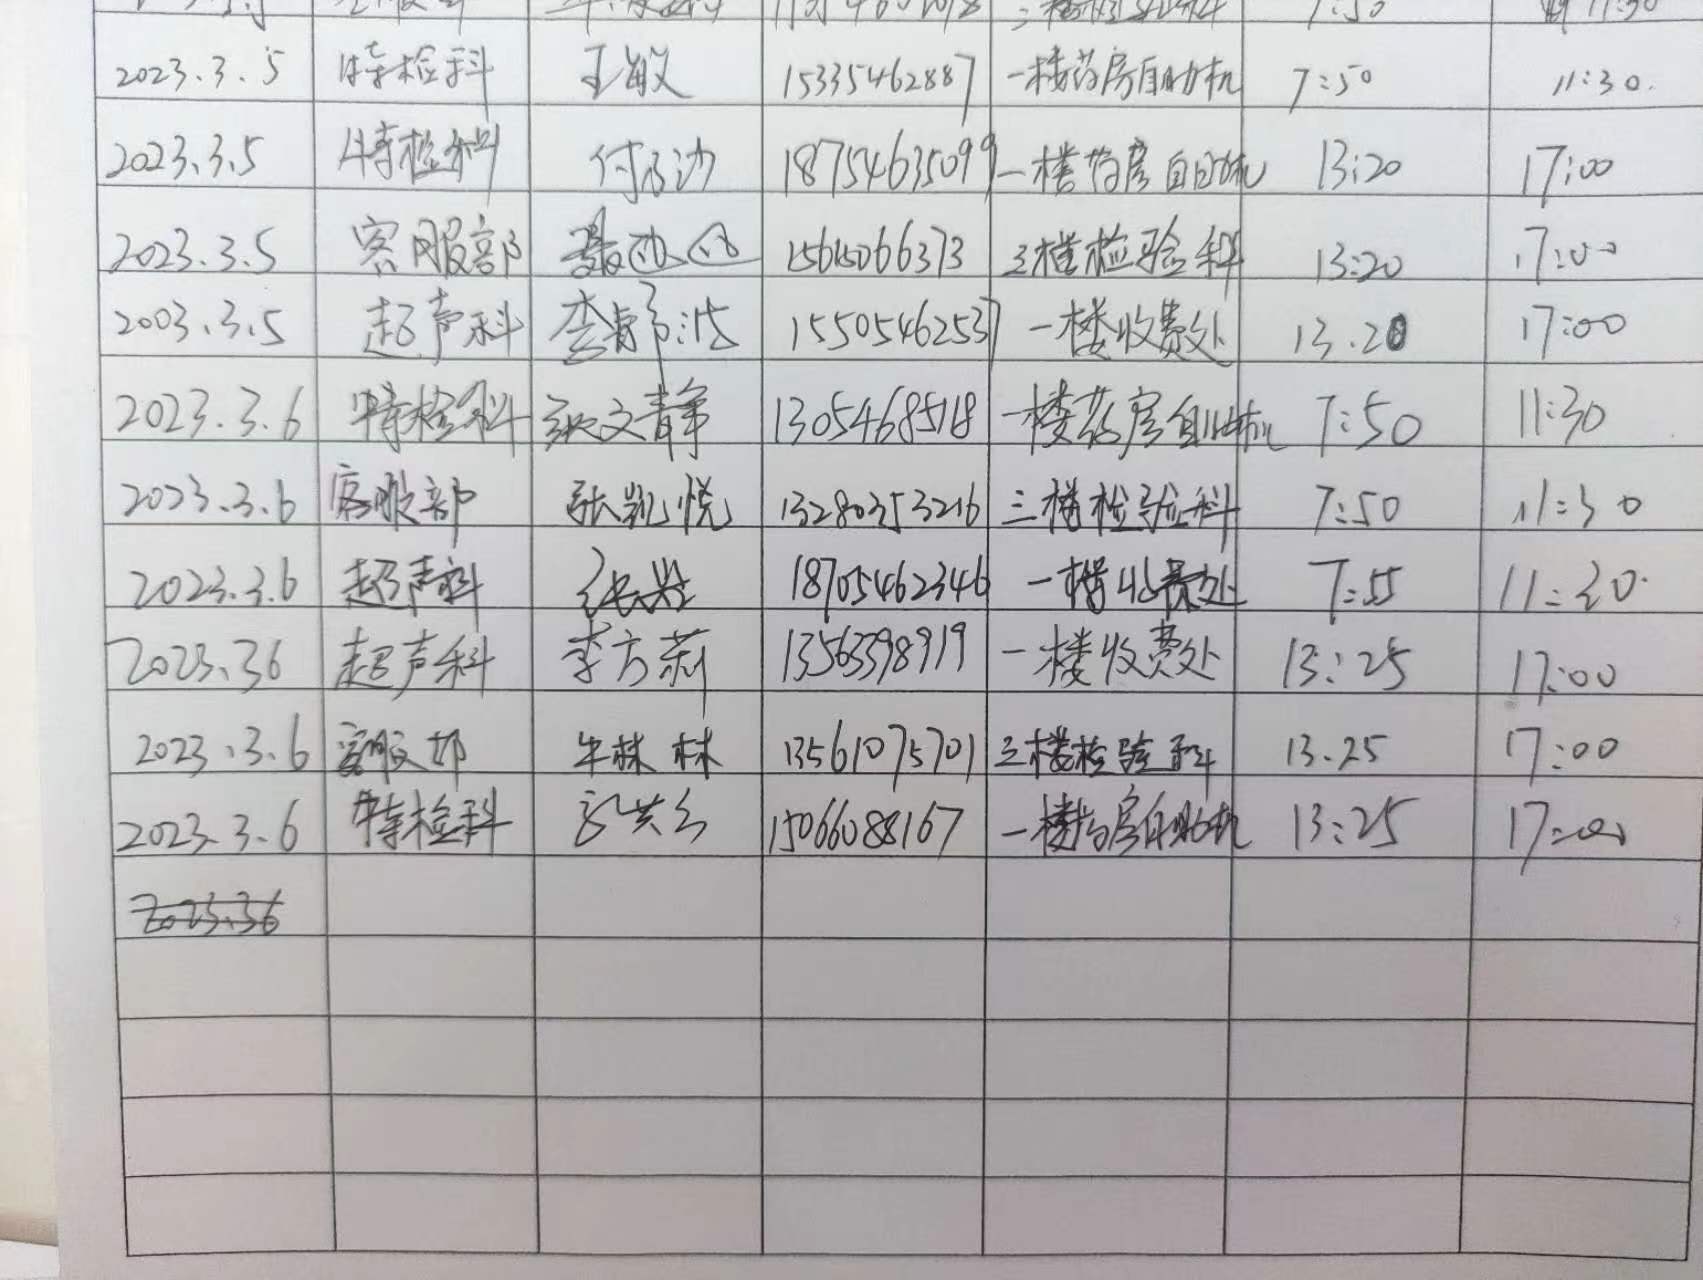 2023.3.5 特检科 王敏 15335462887 一楼药房自助机 7:50 11:30.
2023.3.5 特检科 18754635099 一楼药房自助机 13:20 17:00
2023.3.5 客服部 15615066373 三楼检验科 13:20 17:00
2003.3.5 超声科 15505462537 一楼收费处 13.20 17:00
2023.3.6 特检科 张文静 13054685118 一楼药房自助机 7:50 11:30
2023.3.6 客服部 张凯悦 13280353216 三楼检验科 7:50 11:30
2023.3.6 超声科 18705462346 一楼收费处 7:55 11:30
2023.36 超声科 李方莉 13563398919 一楼收费处 13:25 17:00
2023.3.6 客服部 牛林林 13561075701 三楼检验科 13.25 17:00
2023.3.6 特检科 15066088167 一楼药房自助机 13:25 17:00
2023.36